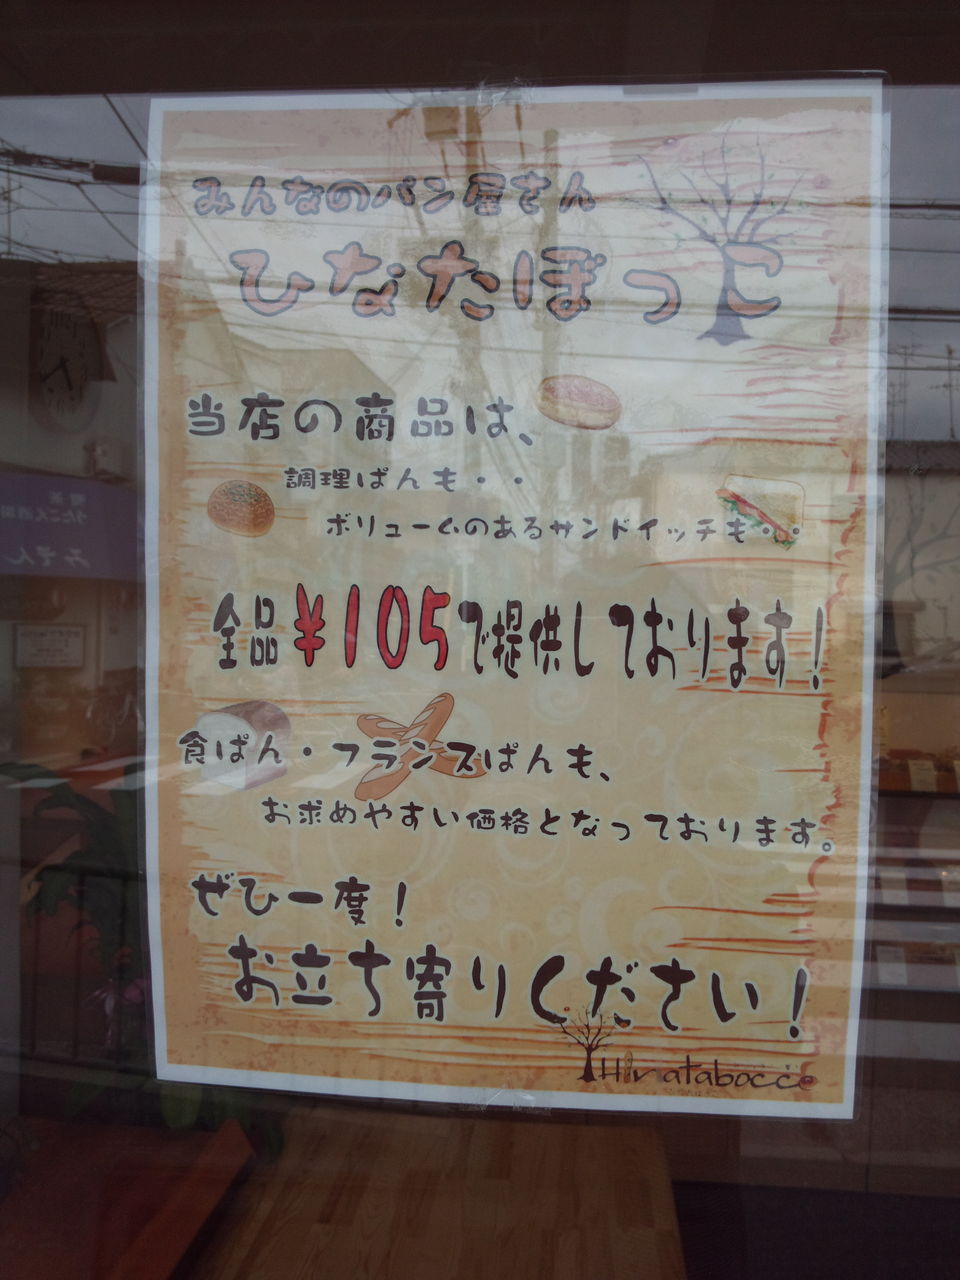 みんなのパン屋さん
ひなたぼっこ
当店の商品は、
調理ぱんも・・
ボリュームのあるサンドイッチも・・
全品¥105で提供しております!
食ぱん・フランスぱんも、
お求めやすい価格となっております。
ぜひ一度!
お立ち寄りください!
Hinatabocco